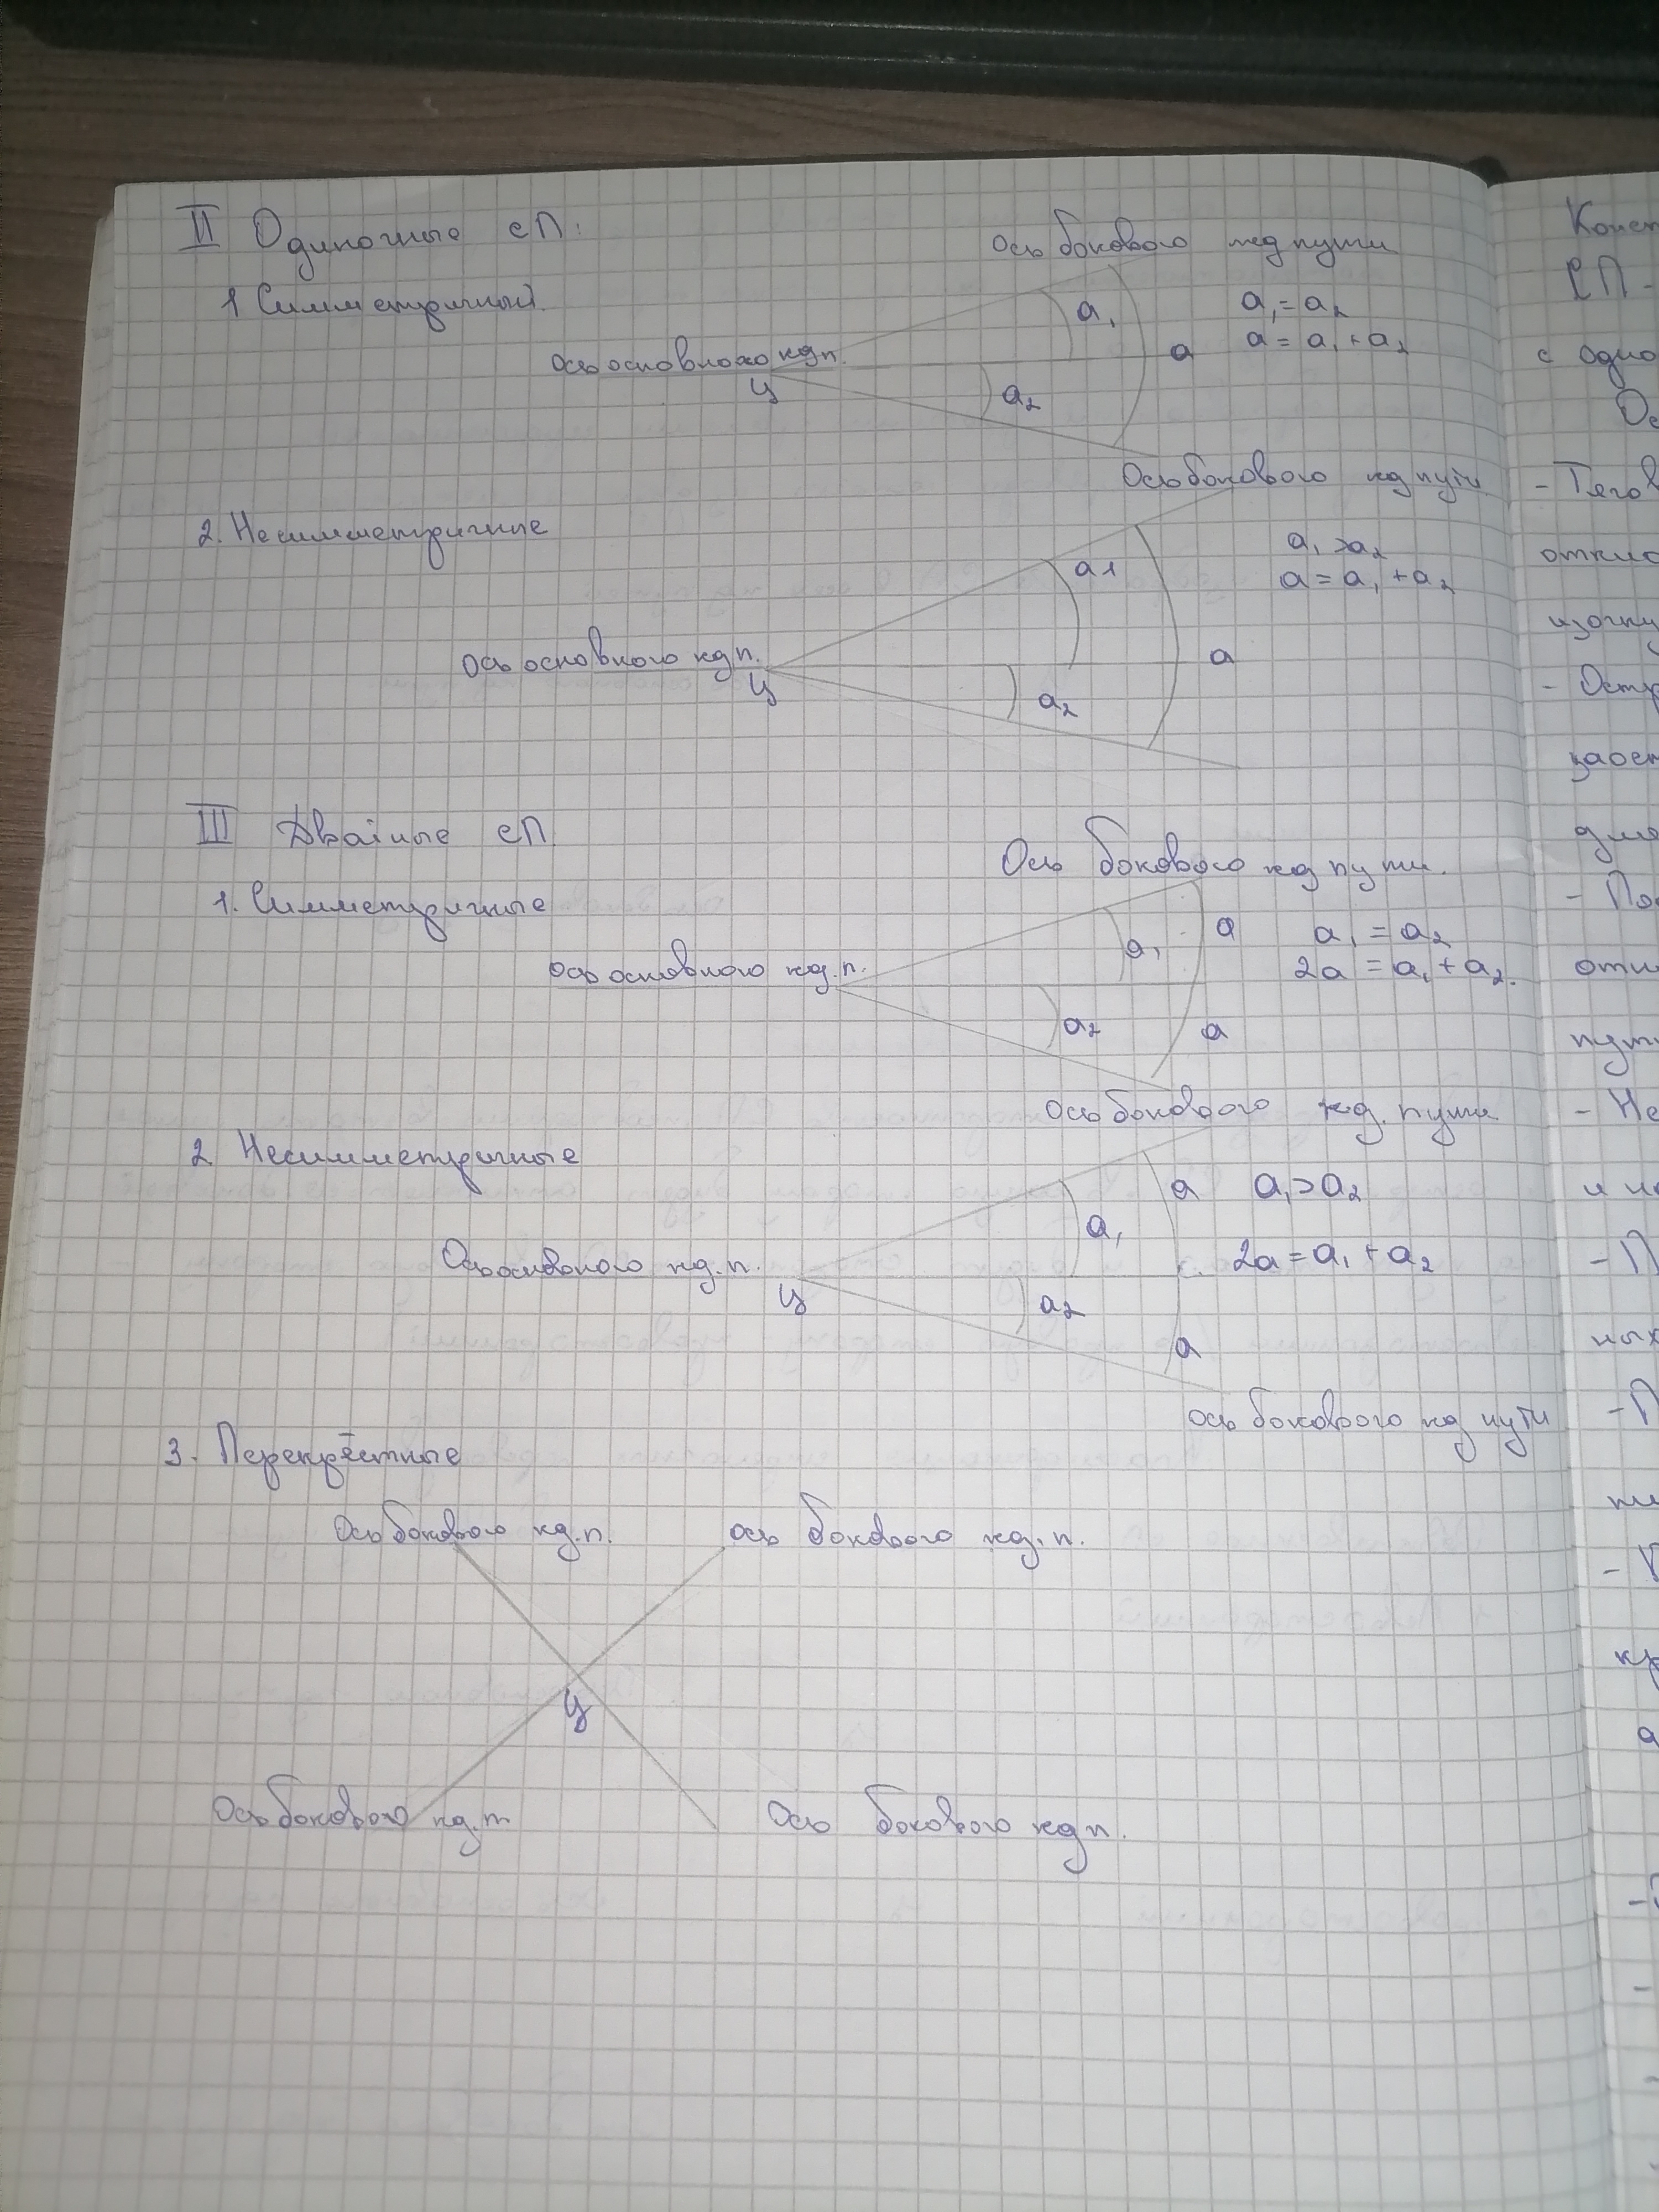 II Одиночные СП:
Ось бокового жд пути
1 Симметричный
a₁
a₁ = a₂
a = a₁ + a₂
Ось основного жд п.
a
Ц
a₂
Ось бокового жд пути
2. Несимметричные
a1
a₁ > a₂
a = a₁ + a₂
Ось основного жд п.
a
Ц
a₂
III Двайные СП
Ось бокового жд пути.
1. Симметричные
a
a₁
a₁ = a₂
2a = a₁ + a₂.
Ось основного жд. п.
a₂
a
Ось бокового жд. пути
2 Несимметричные
a
a₁ > a₂
a₁
Ось основного жд. п.
2a = a₁ + a₂
Ц
a₂
a
Ось бокового жд пути
3. Перекрёстные
Ось бокового жд. п.
ось бокового жд. п.
Ц
Ось бокового жд. п
Ось бокового жд п.
СП -
с одно
- Тягов
пут